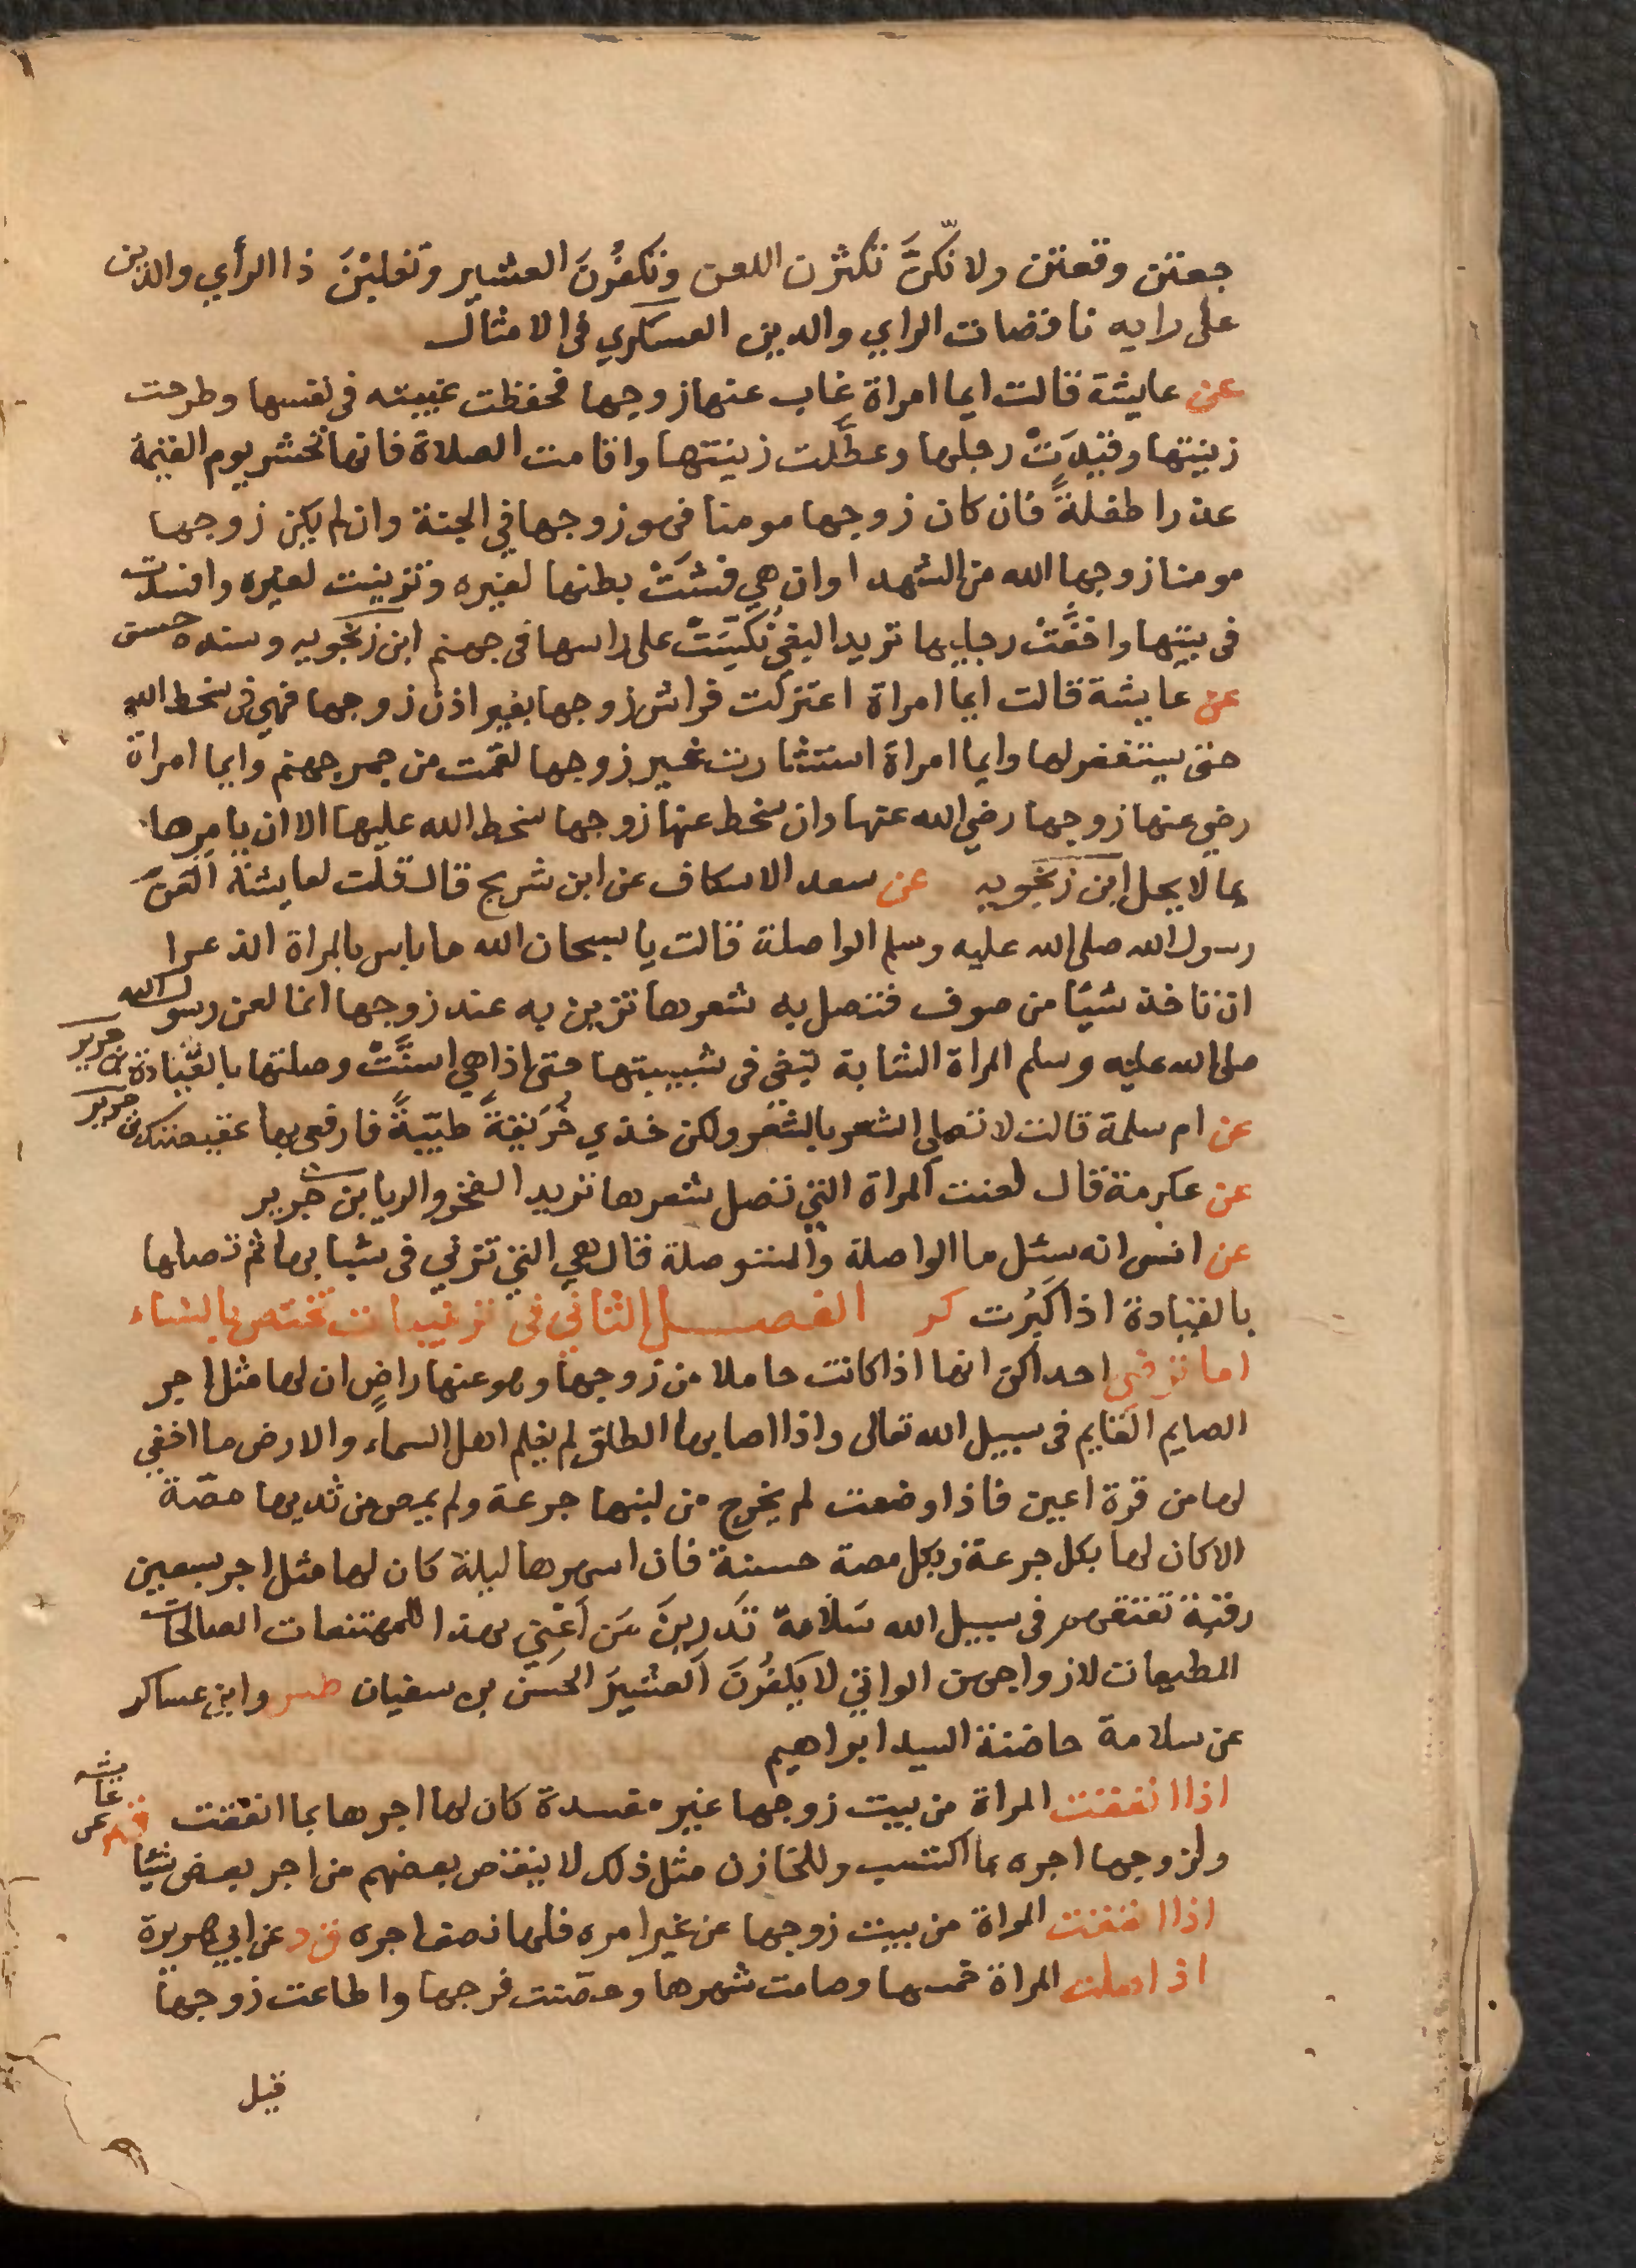 جعتن وقعتن ولانكنّ تكثرن اللعن وتكفُرنَ العشير وتغلبْنَ ذا الرأي والدين
على رايه ناقضات الراي والدين العسكري في الامثال
عن عايشة قالت ايما امراة غاب عنها زوجها فحفظت غيبته في نفسها وطرحت
زينتها وقيّدَتْ رجلها وعطَّلت زينتها واقامت الصلاة فانها تحشر يوم القيمة
عذرا طفلةً فان كان زوجها مومنا فهو زوجها في الجنة وان لم يكن زوجها
مومنا زوجها الله من الشهدا وان هي فشَتْ بطنها لغيره وتزينت لغيره وافسدت
في بيتها واخفَّتْ رجليها تريد البغي نُكّسَتْ على راسها في جهنم ابن زنجويه وسنده حسن
عن عايشة قالت ايما امراة اعتزلت فراش زوجها بغير اذن زوجها فهي في سخط الله
حتى يستغفر لها وايما امراة استشارت غير زوجها لقمت من جمر جهنم وايما امراة
رضي عنها زوجها رضي الله عنها وان سخط عنها زوجها سخط الله عليها الا ان يامرها
بما لا يحل ابن زنجويه عن سعد الاسكاف عن ابن شريح قال قلت لعايشة العن
رسول الله صلى الله عليه وسلم الواصلة قالت يا سبحان الله ما باس بالمراة الذعرا
ان تاخذ شيًا من صوف فتصل به شعرها تزين به عند زوجها انما لعن رسول الله
صلى الله عليه وسلم المراة الشابة تبغي في شبيبتها حتى اذا هي اسنَّتْ وصلتها بالقيادة بن جرير
عن ام سلمة قالت لا تصلي الشعر بالشعر ولكن خذي خُرَيقةً طيّبةً فارفعي بها عقيصتك بن جرير
عن عكرمة قال لعنت المراة التي تصل شعرها تريد الفخر والريا بن جرير
عن انس انه سئل ما الواصلة والمستوصلة قال هي التي تزني في شبابها ثم تصلها
بالقيادة اذا كَبُرت كر الفصل الثاني في ترغيبات تختص بالنساء
اما ترضى احداكن انها اذا كانت حاملا من زوجها وهو عنها راضٍ ان لها مثل اجر
الصايم القايم في سبيل الله تعالى واذا اصابها الطلق لم يعلم اهل السماء والارض ما اخفي
لها من قرة اعين فاذا وضعت لم يخرج من لبنها جرعة ولم يمص من ثديها مصّة
الا كان لها بكل جرعة وبكل مصة حسنة فان اسهرها ليلة كان لها مثل اجر سبعين
رقبة تعتقهم في سبيل الله سَلَامة تَدرِينَ مَن اَعْني بهذا للممتنعات الصالحات
المطيعات لازواجهن الواتي لا يَكفُرنَ العشيرَ الحسن بن سفيان طس وابن عساكر
عن سلامة حاضنة السيد ابراهيم
اذا انفقت المراة من بيت زوجها غير مفسدة كان لها اجرها بما انفقت ق عن عايشه
ولزوجها اجره بما اكتسب وللخازن مثل ذلك لا ينقص بعضهم من اجر بعض شيًا
اذا انفقت المراة من بيت زوجها عن غير امره فلها نصف اجره ق د عن ابي هريرة
اذا صلت المراة خمسها وصامت شهرها وحصّنت فرجها واطاعت زوجها
قيل